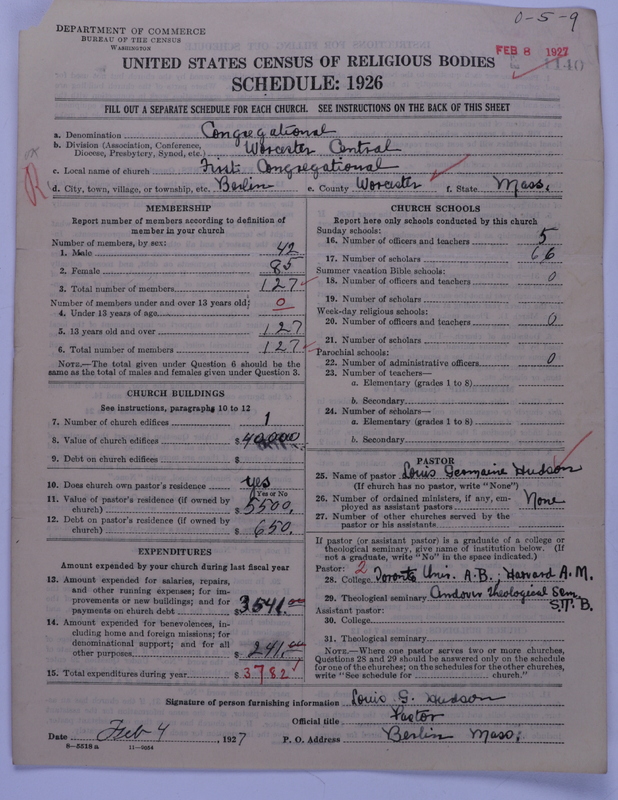 0-5-9
DEPARTMENT OF COMMERCE
BUREAU OF THE CENSUS
WASHINGTON
FEB 8 1927
1140
UNITED STATES CENSUS OF RELIGIOUS BODIES
SCHEDULE: 1926
FILL OUT A SEPARATE SCHEDULE FOR EACH CHURCH. SEE INSTRUCTIONS ON THE BACK OF THIS SHEET
a. Denomination Congregational
b. Division (Association, Conference, Diocese, Presbytery, Synod, etc.) Worcester Central
c. Local name of church First Congregational
R
d. City, town, village, or township, etc. Berlin e. County Worcester f. State Mass.
MEMBERSHIP
Report number of members according to definition of
member in your church
Number of members, by sex:
1. Male 42
2. Female 85
3. Total number of members 127
Number of members under and over 13 years old:
4. Under 13 years of age 0
5. 13 years old and over 127
6. Total number of members 127
NOTE.—The total given under Question 6 should be
same as the total of males and females given under Question 3.
CHURCH BUILDINGS
See instructions, paragraphs 10 to 12
7. Number of church edifices 1
8. Value of church edifices $ 40,000
9. Debt on church edifices $
10. Does church own pastor's residence yes
Yes or No
11. Value of pastor's residence (if owned by
church) $ 5500.
12. Debt on pastor's residence (if owned by
church) $ 650.
EXPENDITURES
Amount expended by your church during last fiscal year
13. Amount expended for salaries, repairs,
and other running expenses; for im-
provements or new buildings; and for
payments on church debt $ 3541.00
14. Amount expended for benevolences, in-
cluding home and foreign missions; for
denominational support; and for all
other purposes $ 241.00
15. Total expenditures during year $ 3782
CHURCH SCHOOLS
Report here only schools conducted by this church
Sunday schools:
16. Number of officers and teachers 5
17. Number of scholars 66
Summer vacation Bible schools:
18. Number of officers and teachers 0
19. Number of scholars
Week-day religious schools:
20. Number of officers and teachers 0
21. Number of scholars
Parochial schools:
22. Number of administrative officers 0
23. Number of teachers—
a. Elementary (grades 1 to 8)
b. Secondary
24. Number of scholars—
a. Elementary (grades 1 to 8)
b. Secondary
PASTOR
25. Name of pastor Louis Germaine Hudson
(If church has no pastor, write "None")
26. Number of ordained ministers, if any, em-
ployed as assistant pastors None
27. Number of other churches served by the
pastor or his assistants
If pastor (or assistant pastor) is a graduate of a college or
theological seminary, give name of institution below. (If
not a graduate, write "No" in the space indicated.)
Pastor: 2
28. College Toronto Univ. A.B.; Harvard A.M.
29. Theological seminary Andover Theological Sem.
S.T.B.
Assistant pastor:
30. College
31. Theological seminary
NOTE.—Where one pastor serves two or more churches,
Questions 28 and 29 should be answered only on the schedule
for one of the churches; on the schedules for the other churches,
write "See schedule for church."
Signature of person furnishing information Louis G. Hudson
Official title Pastor
Date Feb 4, 1927 P. O. Address Berlin Mass.
8—5518 a 11—9054